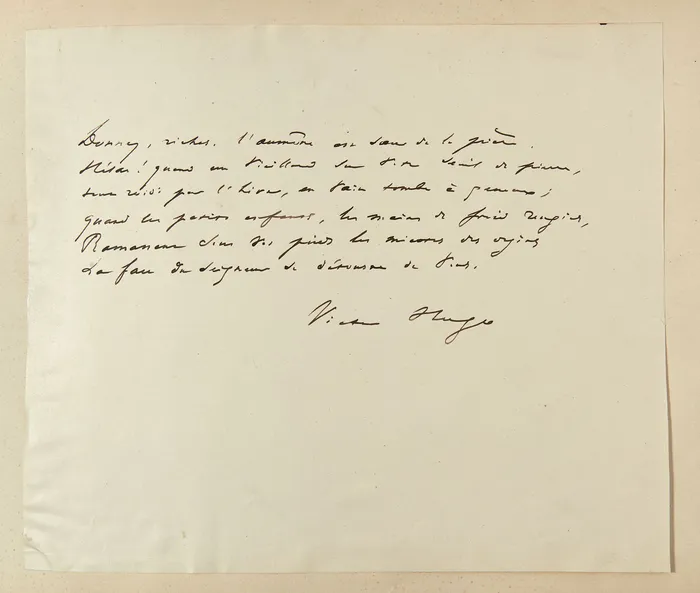 Donnez, riches. l'aumône est sœur de la prière.
Hélas ! quand un vieillard sur votre seuil de pierre,
tout roidi par l'hiver, en vain tombe à genoux ;
quand les petits enfants, les mains de froid rougies,
Ramassent sous vos pieds les miettes des orgies
La face du Seigneur se détourne de vous.
Victor Hugo